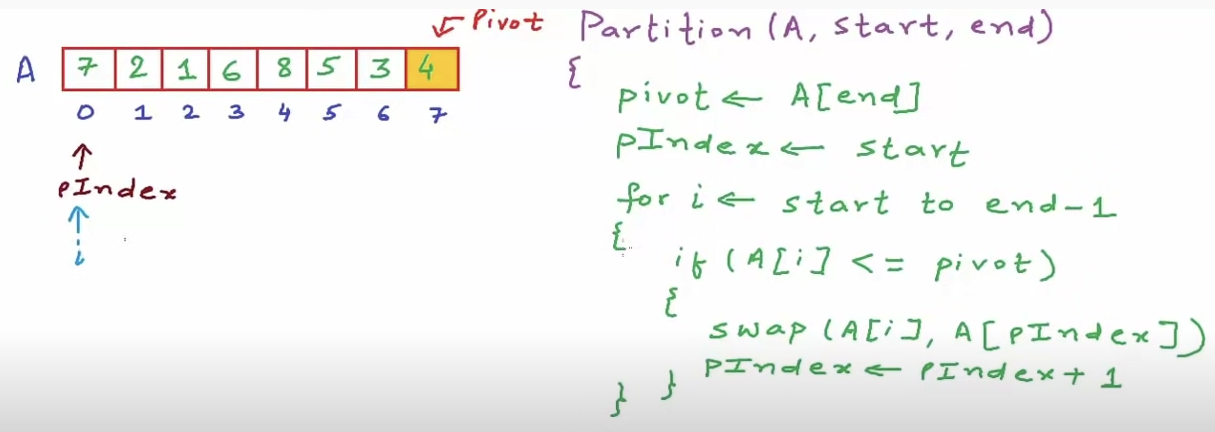 Pivot
A 7 2 1 6 8 5 3 4
0 1 2 3 4 5 6 7
pIndex
i
Partition (A, start, end)
{
pivot ← A[end]
pIndex ← start
for i ← start to end-1
{
if (A[i] <= pivot)
{
swap (A[i], A[pIndex])
pIndex ← pIndex + 1
} }